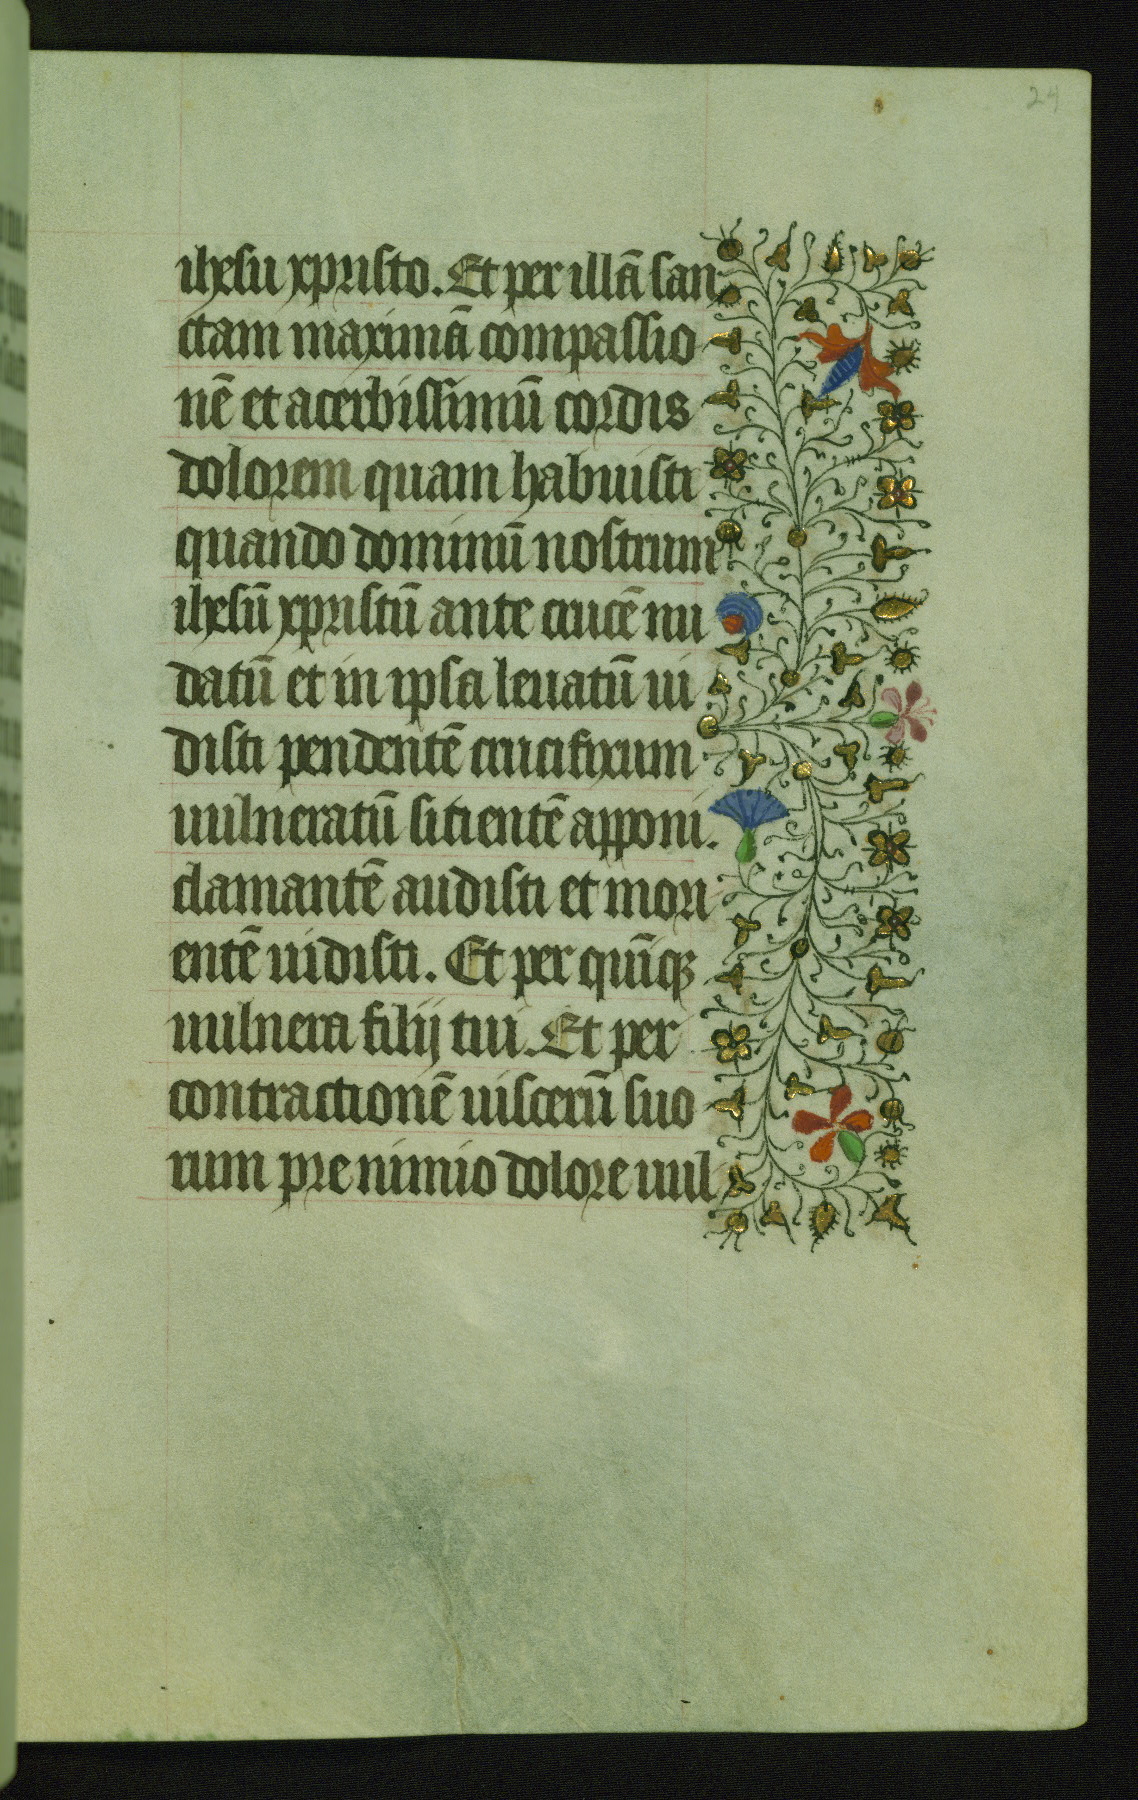 24
ihesu xpristo. Et per illā san
ctam maximā compassio
nē et acerbissimū cordis
dolorem quam habuisti
quando dominū nostrum
ihesū xpristū ante crucē nu
datū et in ipsa leuatū ui
disti pendentē crucifixum
uulneratū sitientē apponi.
clamantē audisti et mori
entē uidisti. Et per quīqꝫ
uulnera filij tui. Et per
contractionē uiscerū suo
rum pre nimio dolore uul